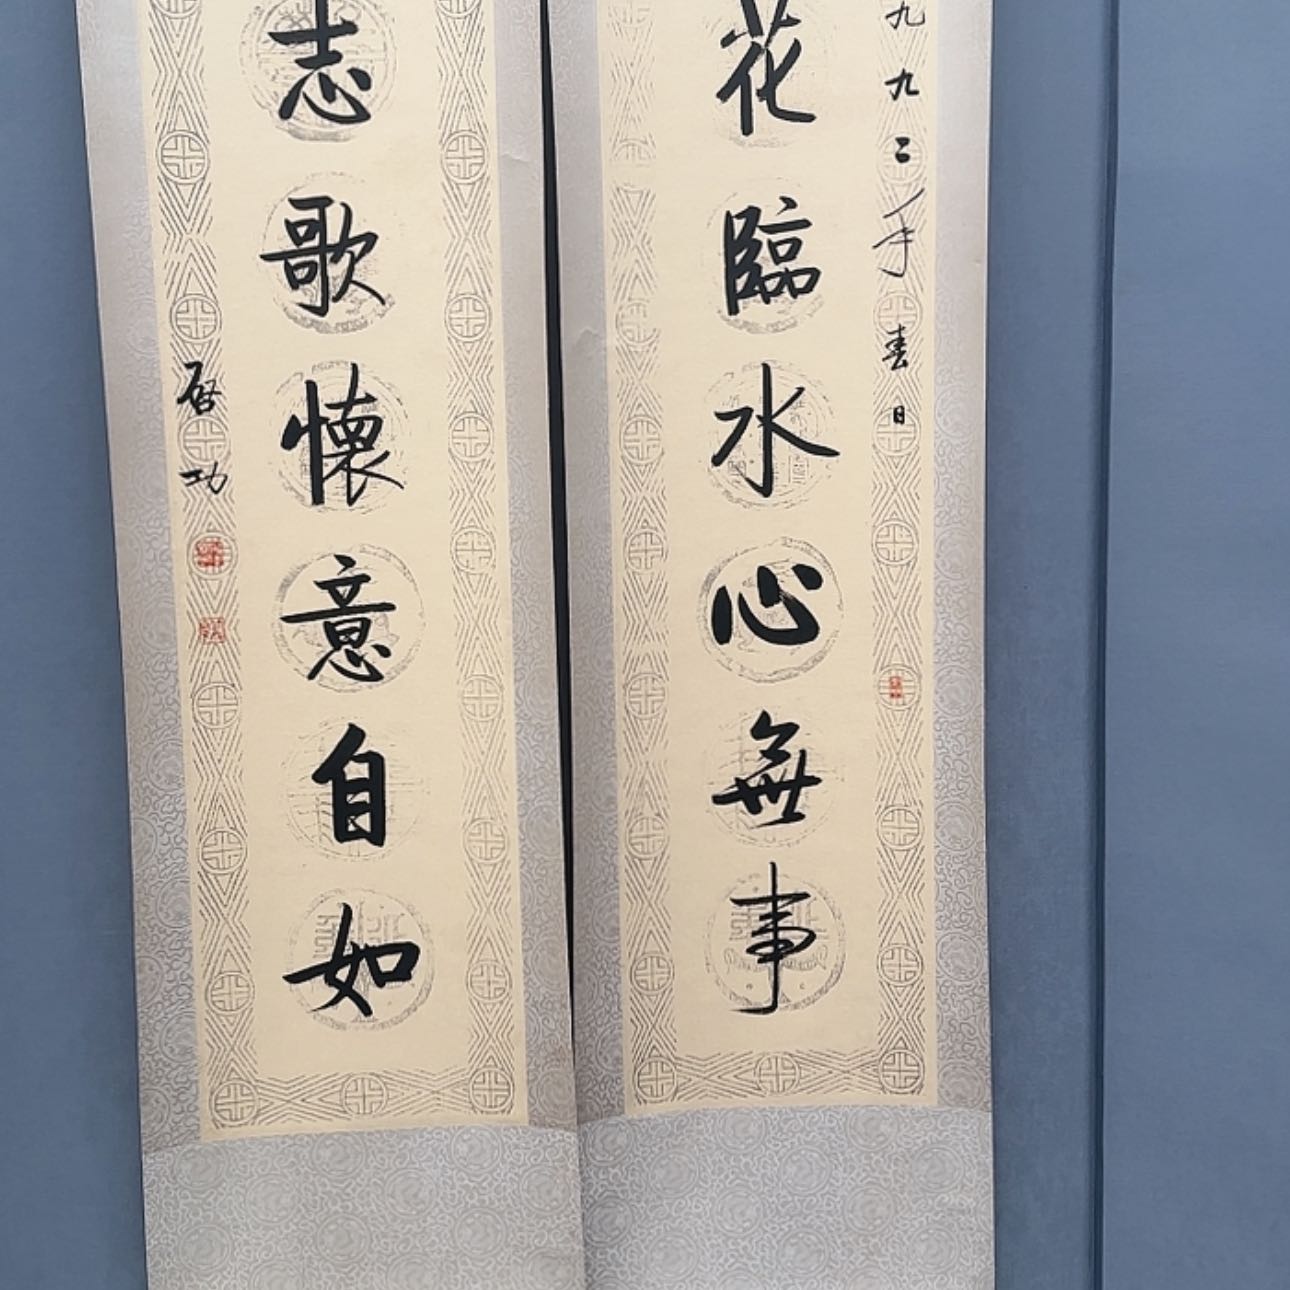 九九二年春日
花臨水心無事
志歌懷意自如
啓功